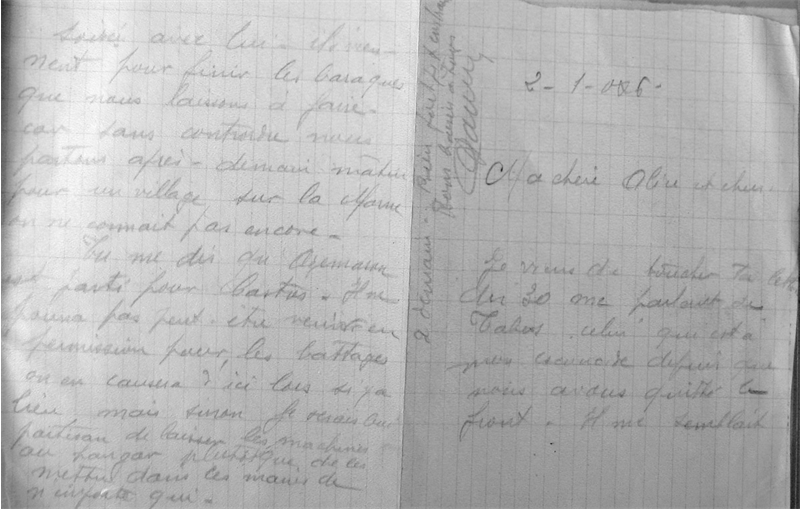 soirée avec lui. Ils vien-
nent pour finir les baraques
que nous laissons à faire.
car sans contrordre nous
partons après-demain matin
pour un village sur la Marne
on ne connait pas encore.
Tu me dis que
est parti pour Castres. Il ne
pourra pas peut-etre venir en
permission pour les battages
on en causera d'ici lors si ya
lieu mais sinon Je serais
partisan de laisser les machines
au hangar plutot que de les
mettre dans les mains de
n'importe qui.
à demain. Rien
2-1-
Ma chère et cher
Je viens de toucher ta lettre
du 30 me parlant de
celui qui est à
mon escouade depuis que
nous avons quitté le
front. Il me semblait